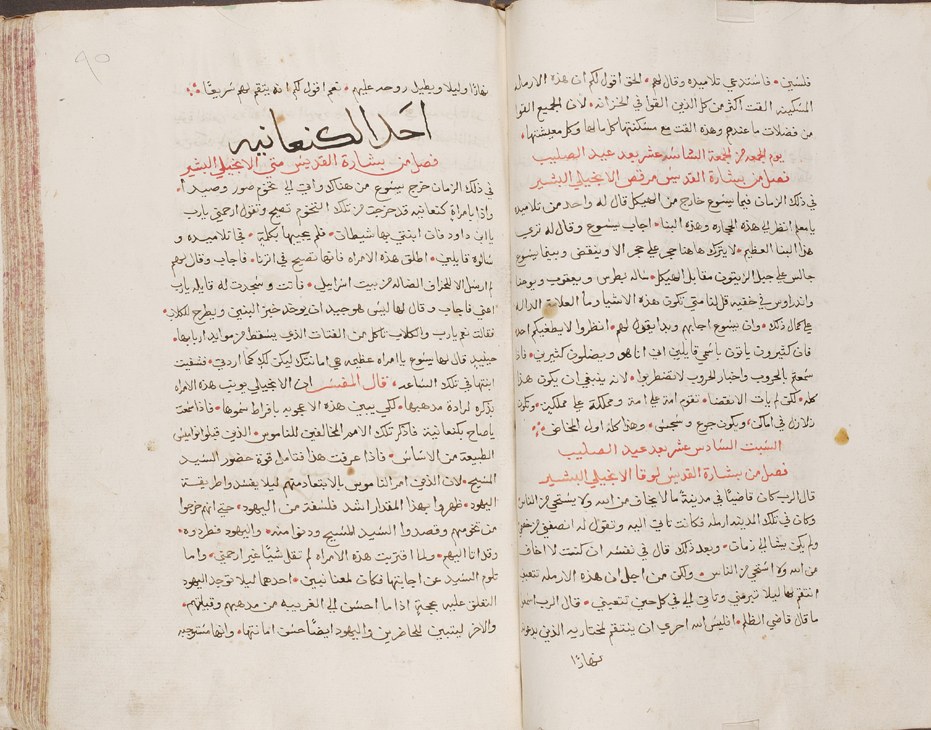 فلسين • فاستدعي تلاميذه وقال لهم • الحق اقول لكم ان هذه الارمله
المسكينه القت اكثر من كل الذين القوا في الخزانه • لان الجميع القوا
من فضلات ما عندهم وهذه القت مع مسكنتها كل مالها وكل معيشتها •
يوم الجمعه من الجمعة السادسه عشر بعد عيد الصليب
فصل من بشارة القديس مرقص الانجيلي البشير
في ذلك الزمان فيما يسوع خارج من الهيكل قال له واحد من تلاميذه
يا معلم انظر الي هذه الحجاره وهذه البنا • اجاب يسوع وقال له تري
هذا البنا العظيم • لا يترك هاهنا حجر علي حجر الا وينقض • وبينما يسوع
جالس علي جبل الزيتون مقابل الهيكل • ساله بطرس ويعقوب ويوحنا
واندراوس في خفيه قل لنا متي تكون هذه الاشيا وما العلامة الداله
علي كمال ذلك • وان يسوع اجابهم وبدا يقول لهم • انظروا لا يطغيكم احد
فان كثيرون ياتون باسمي قايلين اني انا هو ويضلون كثيرين • فاذا
سمعتم بالحروب واخبار الحروب لا تضطربوا • لانه ينبغي ان يكون هذا
كله • لكن لم يات الانقضا • تقوم امة علي امة ومملكة علي مملكة • وتكون
زلازل في اماكن • ويكون جوع وسجس • وهذا كله اول المخاض •
السبت السادس عشر بعد عيد الصليب
فصل من بشارة القديس لوقا الانجيلي البشير
قال الرب كان قاضيًا في مدينة ما لا يخاف من الله ولا يستحي من الناس
وكان في تلك المدينه ارمله فكانت تاتي اليه وتقول له انصفني من خصمي
ولم يكن يشا الي زمان • وبعد ذلك قال في نفسه ان كنت لا اخاف
من الله ولا استحي من الناس • ولكن من اجل ان هذه الارمله تتعبني
انتقم لها ليلا تبرمني وتاتي الي في كل حين تتعبني • قال الرب اسمعوا
ما قال قاضي الظلم • افليس الله احري ان ينتقم لمختاريه الذين يدعونه
نهارًا
٩٠
نهارًا وليلا ويطيل روحه عليهم • نعم اقول لكم انه ينتقم لهم سريعًا •
احد الكنعانيه
فصل من بشارة القديس متي الانجيلي البشير
في ذلك الزمان خرج يسوع من هناك واتي الي تخوم صور وصيدا •
واذا بامراة كنعانيه قد خرجت من تلك التخوم تصيح وتقول ارحمني يارب
يا ابن داود فان ابنتي بها شيطان • فلم يجيبها بكلمة • فجا تلاميذه و
سالوه قايلين • اطلق هذه الامراه فانها تصيح في اثرنا • فاجاب وقال لهم
لم ارسل الا للخراف الضاله من بيت اسراييل • فاتت وسجدت له قايله يارب
اعني فاجاب وقال لها ليس هو جيد ان يوخذ خبز البنين ويطرح للكلاب •
فقالت نعم يارب والكلاب تاكل من الفتات الذي يسقط من موايد اربابها •
حينيذ قال لها يسوع يا امراه عظيمه هي امانتك ليكن لك كما اردتي • فشفيت
ابنتها في تلك الساعه • قال المفسر ان الانجيلي يويب هذه الامراه
بذكره لرادة مذهبها • لكي يبين هذه الاعجوبه بافراط سموها • فاذا سمعت
يا صاح بكنعانية فاذكر تلك الامم المخالفين للناموس • الذين قبلوا نواميس
الطبيعة من الاساس • فاذا عرفت هذا فتامل قوة حضور السيد
المسيح • لان الذي امر الناموس بالابتعاد منهم ليلا يفسدوا طريقة
اليهود • ظهروا بهذا المقدار اشد فلسفة من اليهود • حتي انهم خرجوا
من تخومهم وقصدوا السيد المسيح ودنوا منه • واليهود فطردوه •
وقد اتا اليهم • ولما اقتربت هذه الامراه لم تقل شيًا غير ارحمني • واما
تلوم السيد عن اجابتها فكان لمعنانيين • احدها ليلا توجد اليهود
التغلق عليه بحجة اذا ما احسن الي الغريبه من مذهبهم وقبيلتهم •
والاخر ليتبين للحاضرين واليهود ايضًا حسن امانتها • وانها مستوجبه